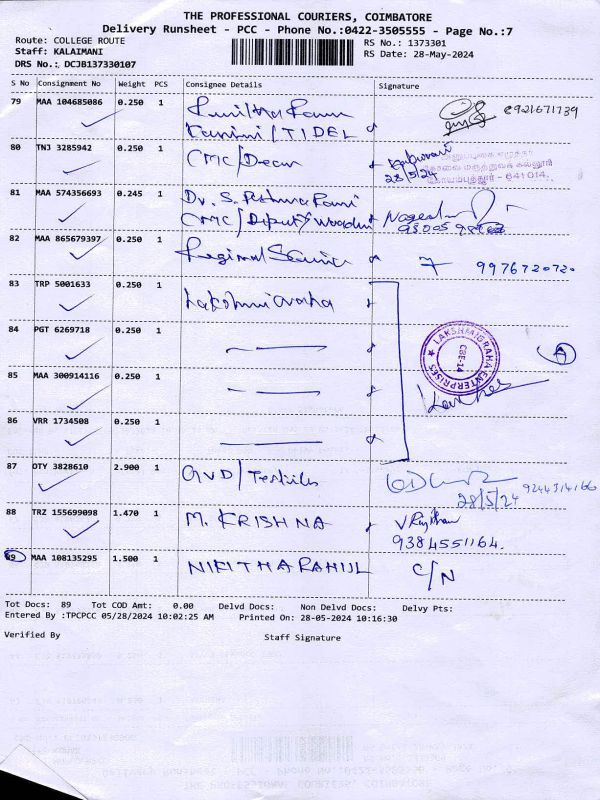 THE PROFESSIONAL COURIERS, COIMBATORE
Delivery Runsheet - PCC - Phone No.:0422-3505555 - Page No.:7
Route: COLLEGE ROUTE
Staff: KALAIMANI
DRS No.: DCJB137330107
RS No.: 1373301
RS Date: 28-May-2024
S No Consignment No Weight PCS Consignee Details Signature
79 MAA 104685086 0.250 1
/TIDEL 8921671739
80 TNJ 3285942 0.250 1 CMC/Dean
28/5/24 641 014.
81 MAA 574356693 0.245 1 Dr. S.
CMC/
82 MAA 865679397 0.250 1 Regional 7 9976720720
83 TRP 5001633 0.250 1
84 PGT 6269718 0.250 1
LAKSHMIGRAHA ENTERPRISES
CBE-14
A
85 MAA 300914116 0.250 1
86 VRR 1734508 0.250 1
87 OTY 3828610 2.900 1 GVD/Textiles
28/5/24 9244314166
88 TRZ 155699098 1.470 1 M. KRISHNA
9384551164.
89 MAA 108135295 1.500 1 NIKITHA RAHUL C/N
Tot Docs: 89 Tot COD Amt: 0.00 Delvd Docs: Non Delvd Docs: Delvy Pts:
Entered By :TPCPCC 05/28/2024 10:02:25 AM Printed On: 28-05-2024 10:16:30
Verified By Staff Signature